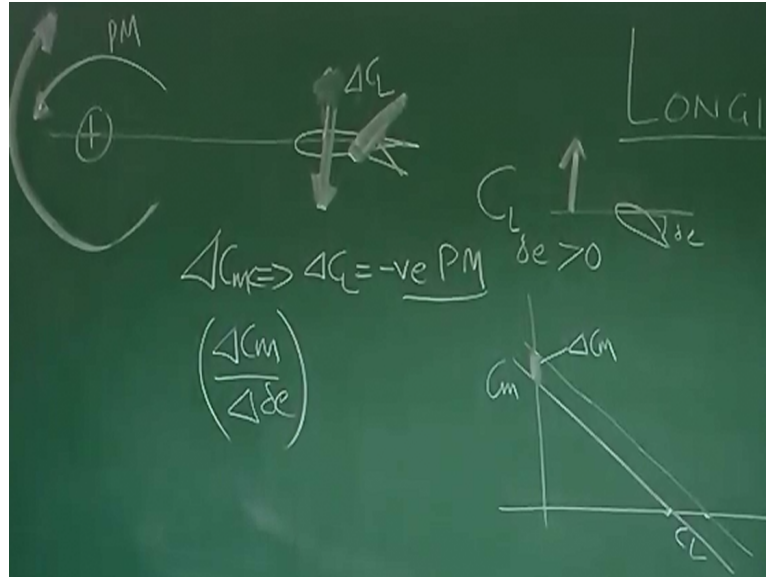 PM
ΔC_L
LONGI
+
C_L
δe
δe > 0
ΔCm => ΔC_L = -ve PM
(ΔCm / Δδe)
ΔCm
Cm
C_L